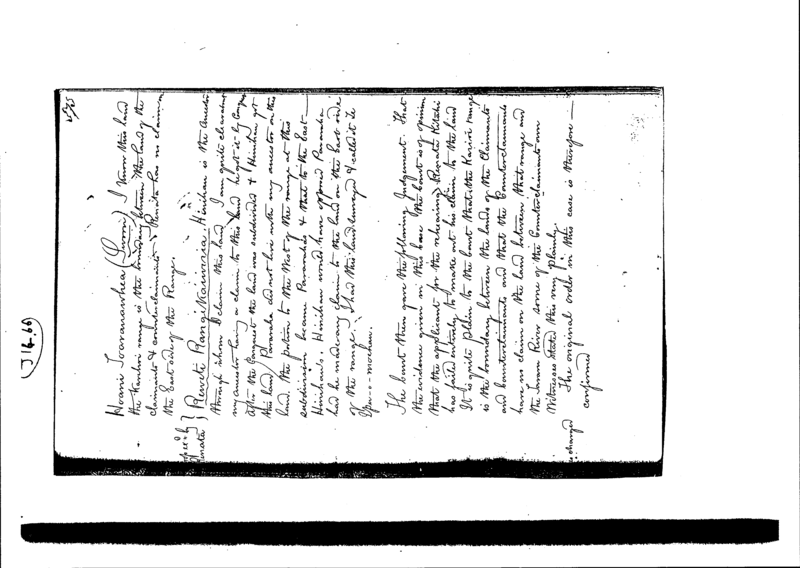 J 14.66
Hoani Tovaranarohea (Sworn) I know this land
the Kaririri range is the boundary between the land of the
claimants & counterclaimants. Renata has no claim on
the East side of the Range.
Reweti Rangikaiwaria Hinihau is the Ancestor
through whom I claim this land. I am quite clear about
my ancestor having a claim to this land he got it by Conquest
After the Conquest the land was subdivided & Hinihau got
this land. Paranaka did not live with my ancestor on this
land. the portion to the West of the range at this
subdivision became Paranaka's & that to the East
Hinihau's. Hinihau would have opposed Paranaka
had he made any claim to the land on the East side
of the range. I had this land surveyed & called it Te
Upu-o-moehau.
The Court then gave the following Judgement. That
the evidence given in this case the Court is of opinion
that the applicant for the rehearing Renata Kitehi
has failed entirely to make out his claim to the land
It is quite plain to the Court that the Kariri range
is the boundary between the lands of the Claimants
and Counterclaimants and that the Counterclaimants
have no claim on the land between that range and
the River some of the Counterclaimants own
Witnesses stated this very plainly.
The original order in this case is therefore
confirmed